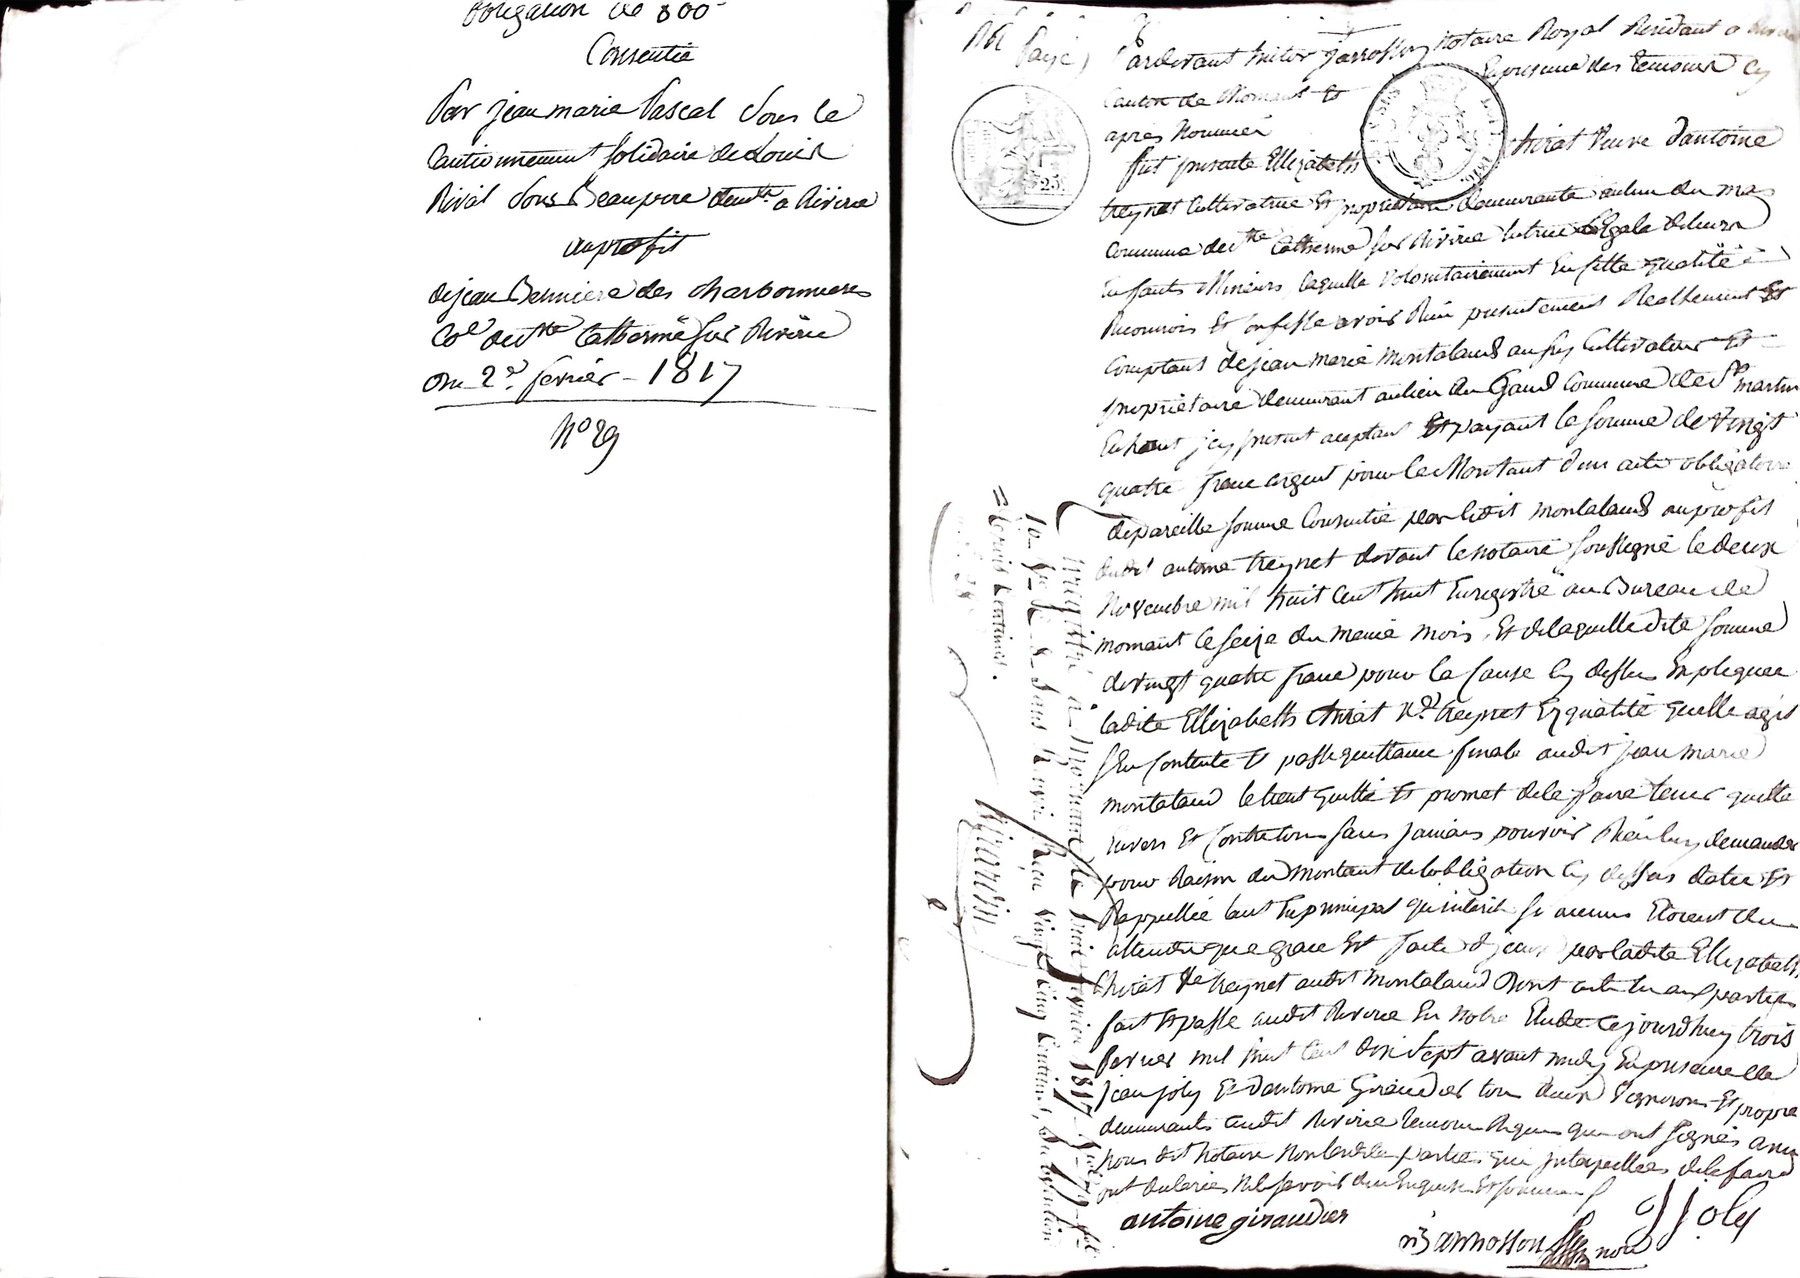 obligation de 800f
Consentie
Par jean marie Pascal Sous le
Cautionnement Solidaire de Louis
Rival Sous Beaupere demts a Riverie
au profit
de jean Berniere des charbonnieres
Coe de Ste Catherine sur Riverie
Du 2e fevrier - 1817
No 29
Pardevant notaire Royal Residant a
Canton de Mornant Et En presence des temoins Cy
apres Nommés
fut presente Ellizabeth Veuve d'antoine
treynet Cultivatrice Et propriétaire demeurante aulieu du mas
Commune de Ste Catherine sur Riverie tutrice Legale de leurs
Enfants Mineurs, laquelle Volontairement En sette qualité à
Reconnois Et Confesse avoir Reçu presentement Reallement Et
Comptant de jean marie montaland Cultivateur Et
propriétaire demeurant aulieu du Commune de St martin
En haut jcy present aceptant Et payant la somme de Vingt
quatre franc argent pour le Montant d'un acte obligatoire
de pareille somme Consentie par ledit montaland au profit
dudit antoine treynet devant le notaire soussigné le deux
Novembre mil huit Cent huit Enregistré au Bureau de
mornant le seize du meme mois, Et de laquelle dite somme
de vingt quatre franc pour la Cause Cy dessus Expliquée
ladite Ellizabeth Ve treynet En qualité quelle agis
sen Contente Et passe quittance finale audit jean marie
montaland le tient quitte Et promet de le faire tenir quitte
Envers Et Contre tous sans jamais pouvoir Rien luy demander
pour Raison du montant de l'obligation Cy dessus datée Et
Rappellée tant En principal qu'interets si aucuns Etoient du
attendu que grace Est faite par ladite Ellizabeth
Ve treynet audit montaland Dont acte lu aux parties
fait Et passé audit Riverie En notre Etude Cejourd'huy trois
fevrier mil huit Cent dix Sept avant midy En presence de
jean joly Et d'antoine Giraudier tous deux Vignerons Et propre
demeurants audit Riverie temoins Requis qui ont signés avec
nous dit notaire non lesdites parties qui jnterpellées de le faire
ont declarées ne le savoir de ce Enquises Et sommées
antoine giraudier
JJoly
not
Enregistré à Mornant le fevrier 1817
Reçu Vingt Cinq Centimes,